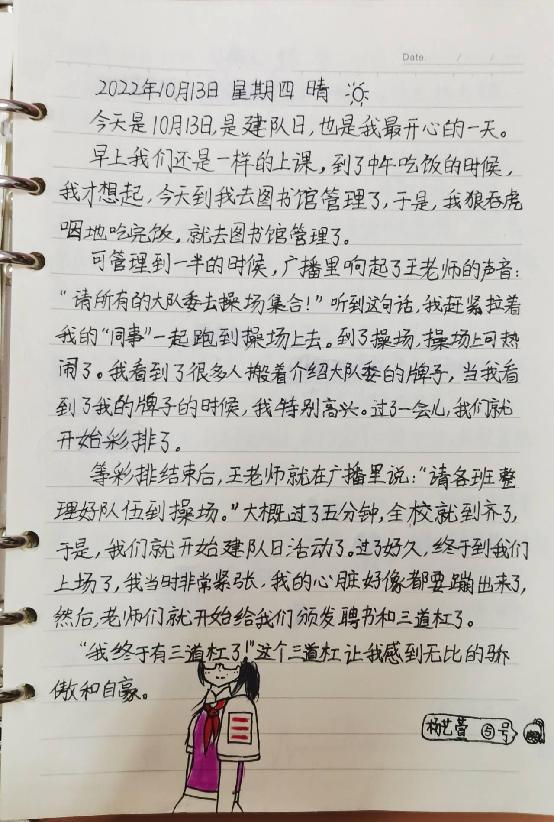 Date. / /
2022年10月13日 星期四 晴
今天是10月13日,是建队日,也是我最开心的一天。
早上我们还是一样的上课,到了中午吃饭的时候,
我才想起,今天到我去图书馆管理了,于是,我狼吞虎
咽地吃完饭,就去图书馆管理了。
可管理到一半的时候,广播里响起了王老师的声音:
“请所有的大队委去操场集合!”听到这句话,我赶紧拉着
我的“同事”一起跑到操场上去。到了操场,操场上可热
闹了。我看到了很多人搬着介绍大队委的牌子,当我看
到了我的牌子的时候,我特别高兴。过了一会儿,我们就
开始彩排了。
等彩排结束后,王老师就在广播里说:“请各班整
理好队伍到操场。”大概过了五分钟,全校就到齐了,
于是,我们就开始建队日活动了。过了好久,终于到我们
上场了,我当时非常紧张,我的心脏好像都要蹦出来了,
然后,老师们就开始给我们颁发聘书和三道杠了。
“我终于有三道杠了!”这个三道杠让我感到无比的骄
傲和自豪。
杨艺萱 ⑤号